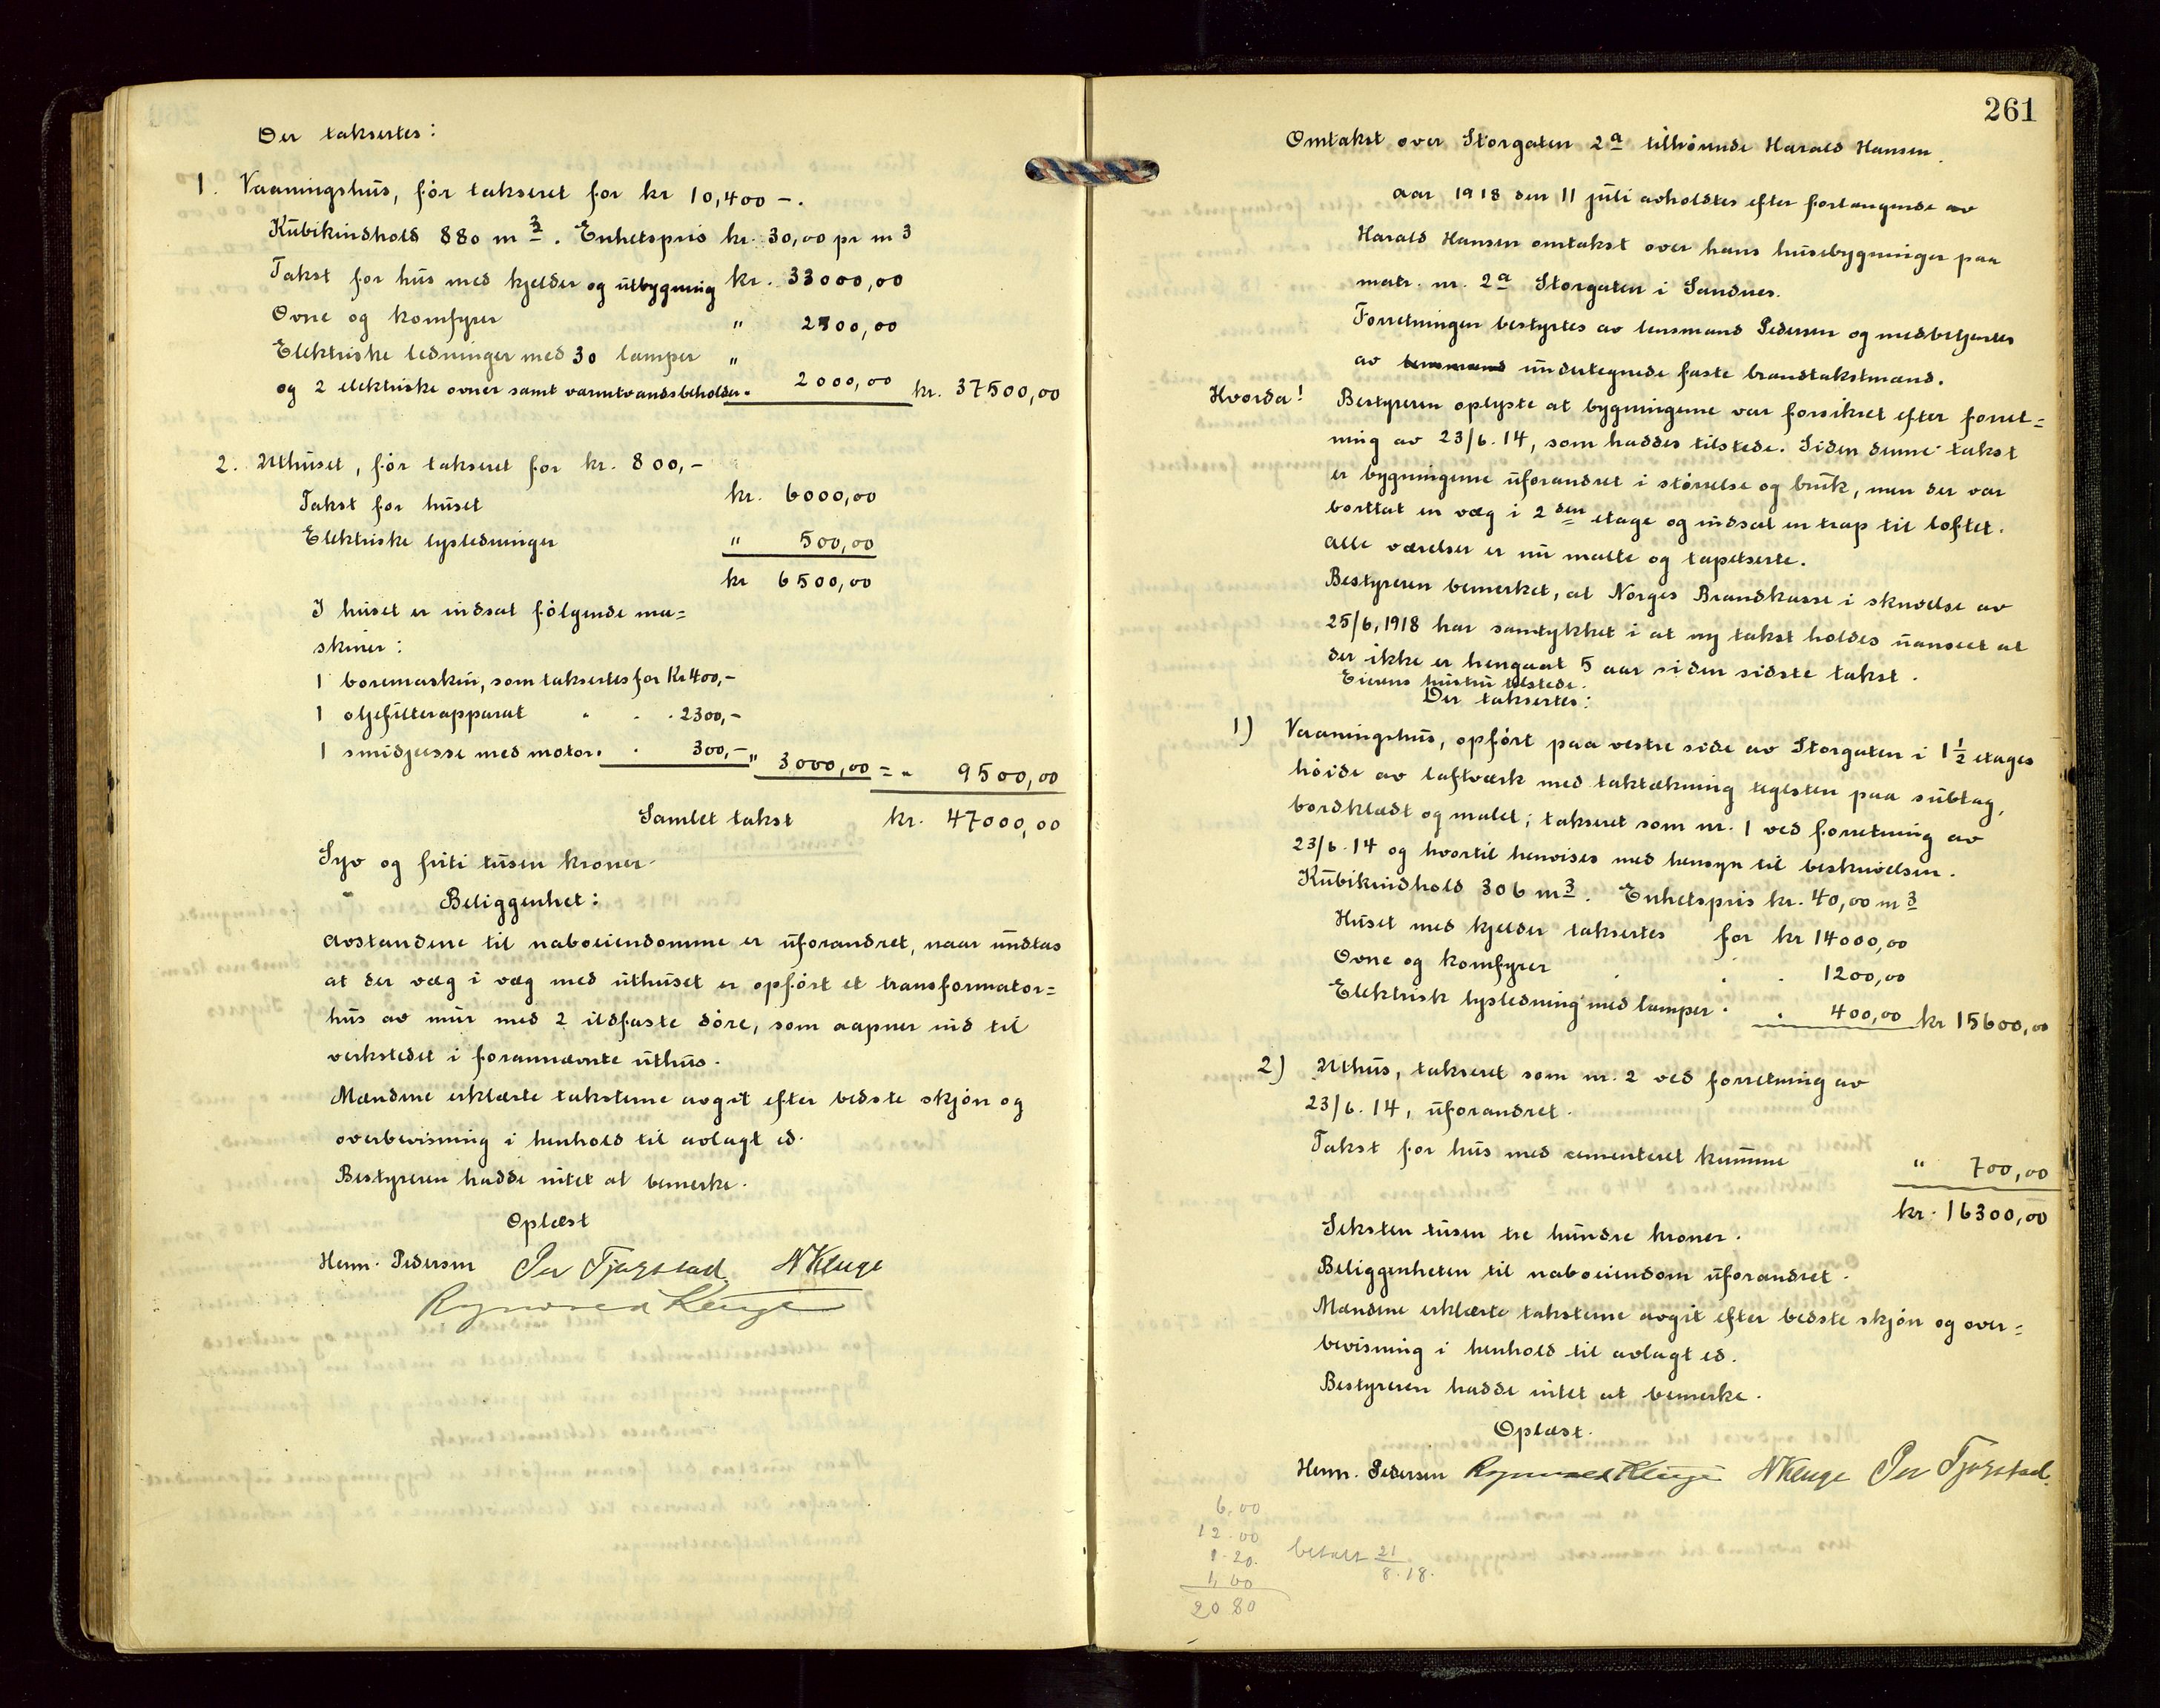 Der taksertes:
1. Vaaningshus, før takseret for kr 10,400 -.
Kubikindhold 880 m3. Enhetspris kr. 30,00 pr m3
Takst for hus med kjelder og utbygning kr. 33000,00
Ovne og komfyrer " 2500,00
Elektriske ledninger med 30 lamper "
og 2 elektriske ovner samt varmtvandsbeholder. 2000,00 kr. 37500,00
2. Uthuset, før takseret for kr. 800,-
Takst for huset kr. 6000,00
Elektriske lysledninger " 500,00
kr 6500,00
I huset er indsat følgende ma=
skiner:
1 boremaskin, som taksertes for Kr 400,-
1 oljefilterapparat . . . 2300,-
1 smidjeesse med motor. . 300,- " 3000,00 = " 9500,00
Samlet takst kr. 47000,00
Syv og firti tusen kroner.
Beliggenhet:
Avstandene til naboeiendomme er uforandret, naar undtas
at der væg i væg med uthuset er opført et transformator=
hus av mur med 2 ildfaste døre, som aapner ind til
verkstedet i forannævnte uthus.
Mændene erklærte taksterne avgit efter bedste skjøn og
overbevisning i henhold til avlagt ed.
Bestyreren hadde intet at bemerke.
Oplæst
Herm. Pedersen Per Tjøgstad N Kluge
Rognvald Kluge
261
Omtakst over Storgaten 2a tilhørende Harald Hansen.
Aar 1918 den 11 juli avholdtes efter forlangende av
Harald Hansen omtakst over hans husebygninger paa
matr. nr. 2a Storgaten i Sandnes.
Forretningen bestyrtes av lensmand Pedersen og medbetjentes
av lensmand undertegnede faste brandtakstmænd.
Hvorda! Bestyreren oplyste at bygningerne var forsikret efter forret=
ning av 23/6.14, som haddes tilstede. Siden denne takst
er bygningerne uforandret i størrelse og bruk, men der var
borttat en væg i 2den etage og indsat en trap til loftet.
Alle værelser er nu malte og tapetserte.
Bestyreren bemerket, at Norges Brandkasse i skrivelse av
25/6, 1918 har samtykket i at ny takst holdes uanseet at
der ikke er hengaat 5 aar siden sidste takst.
Eierens hustru tilstede.
Der taksertes:
1) Vaaningshus, opført paa vestre side av Storgaten i 1½ etages
høide av laftværk med taktækning teglsten paa subtag,
bordklædt og malet; takseret som nr. 1 ved forretning av
23/6.14 og hvortil henvises med hensyn til beskrivelsen.
Kubikindhold 306 m3. Enhetspris kr. 40,00 m3
Huset med kjelder taksertes for kr 14000,00
Ovne og komfyrer . . . 1200,00
Elektrisk lysledning med lamper . . 400,00 kr 15600,00
2) Uthus, takseret som nr. 2 ved forretning av
23/6.14, uforandret.
Takst for hus med cementeret kumme " 700,00
kr. 16300,00
Seksten tusen tre hundre kroner.
Beliggenheten til naboeiendom uforandret.
Mændene erklærte taksterne avgit efter bedste skjøn og over=
bevisning i henhold til avlagt ed.
Bestyreren hadde intet at bemerke.
Oplæst.
Herm. Pedersen Rognvald Kluge N Kluge Per Tjøgstad.
6,00
12.00
1.20.
1,60
20 80
betalt 21/8.18.